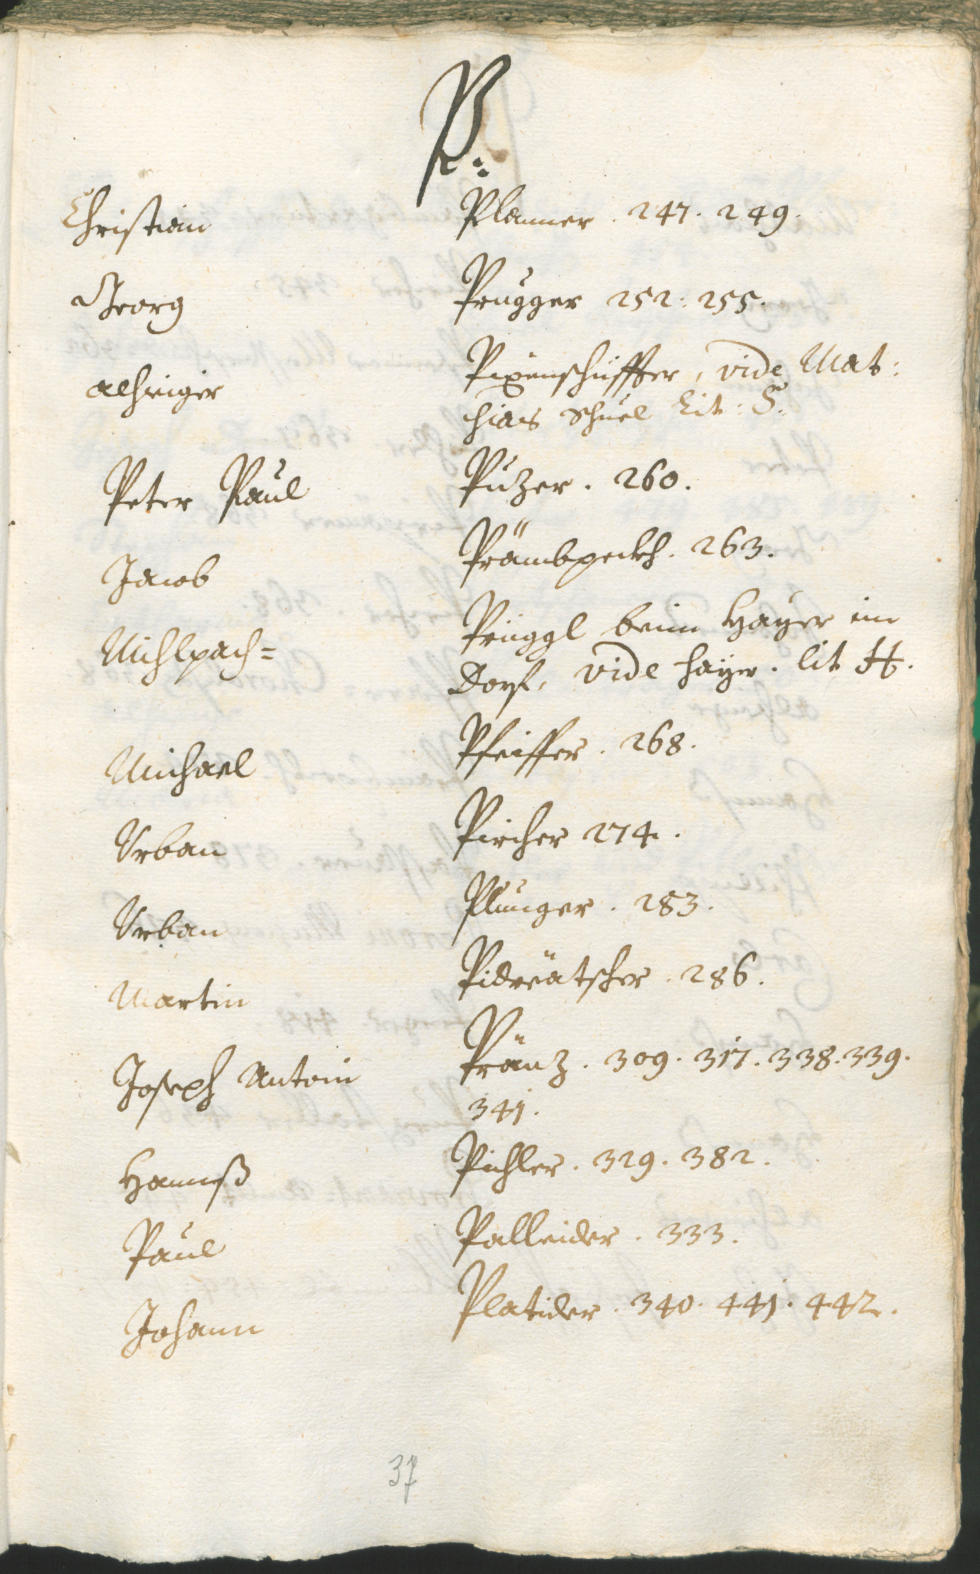 P:
Christian Planner . 247. 249.
Georg Prugger 252. 255.
alhiesiger Pixenschüffter, vide Mat:
hias Schuel Lit: S.
Peter Paul Puzer . 260.
Jacob Prämbpeckh . 263.
Mihlpach= Prüggl beim Hayer im
Dorf, vide hayer . lit H.
Michael Pfeiffer . 268.
Vrban Pircher 274.
Vrban Plunger . 283.
Martin Pidrëatscher . 286.
Joseph Antoni Pränz . 309. 317. 338. 339.
341.
Hannß Pichler . 329. 382.
Paul Palleider . 333.
Johann Platider . 340. 441. 442.
37